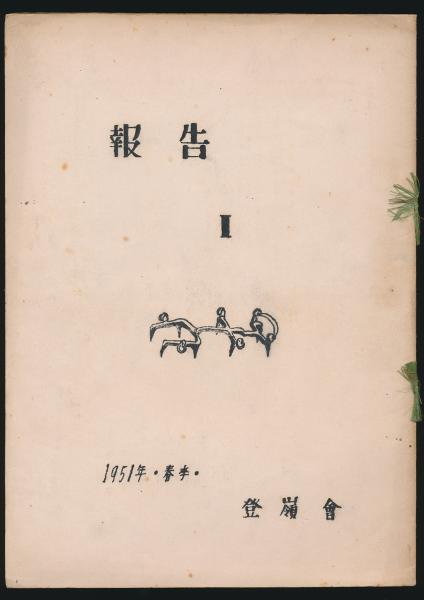 報告
I
1951年・春季・
登嶺會